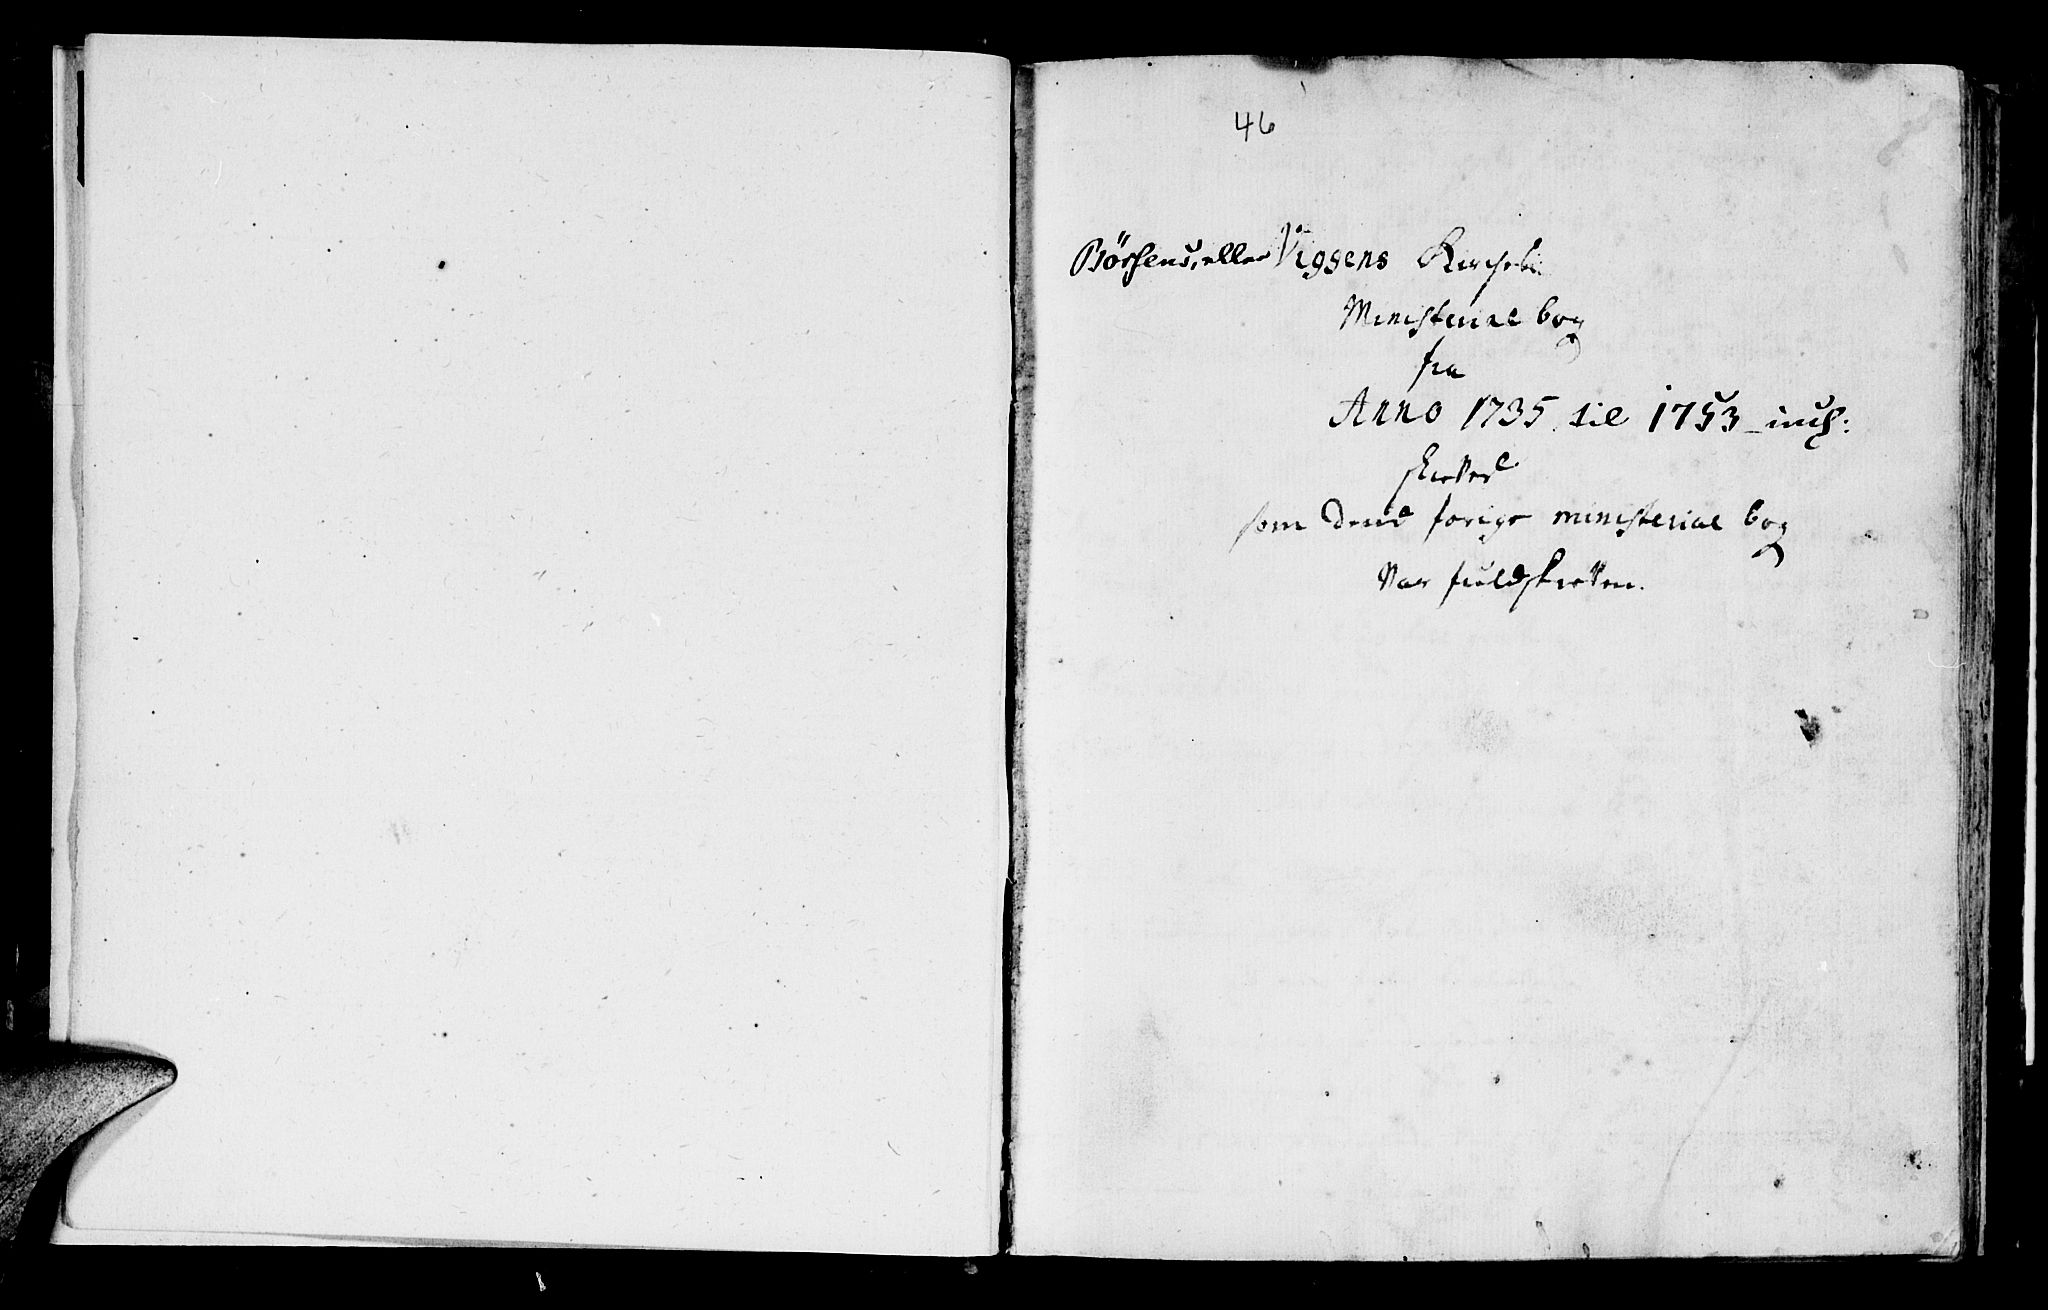 46
Börsens, eller Viggens Kirches
Ministerial bog
fra
Anno 1735 til 1753 incl:
skreved
som dend forige ministerial bog
var fuldskreven.